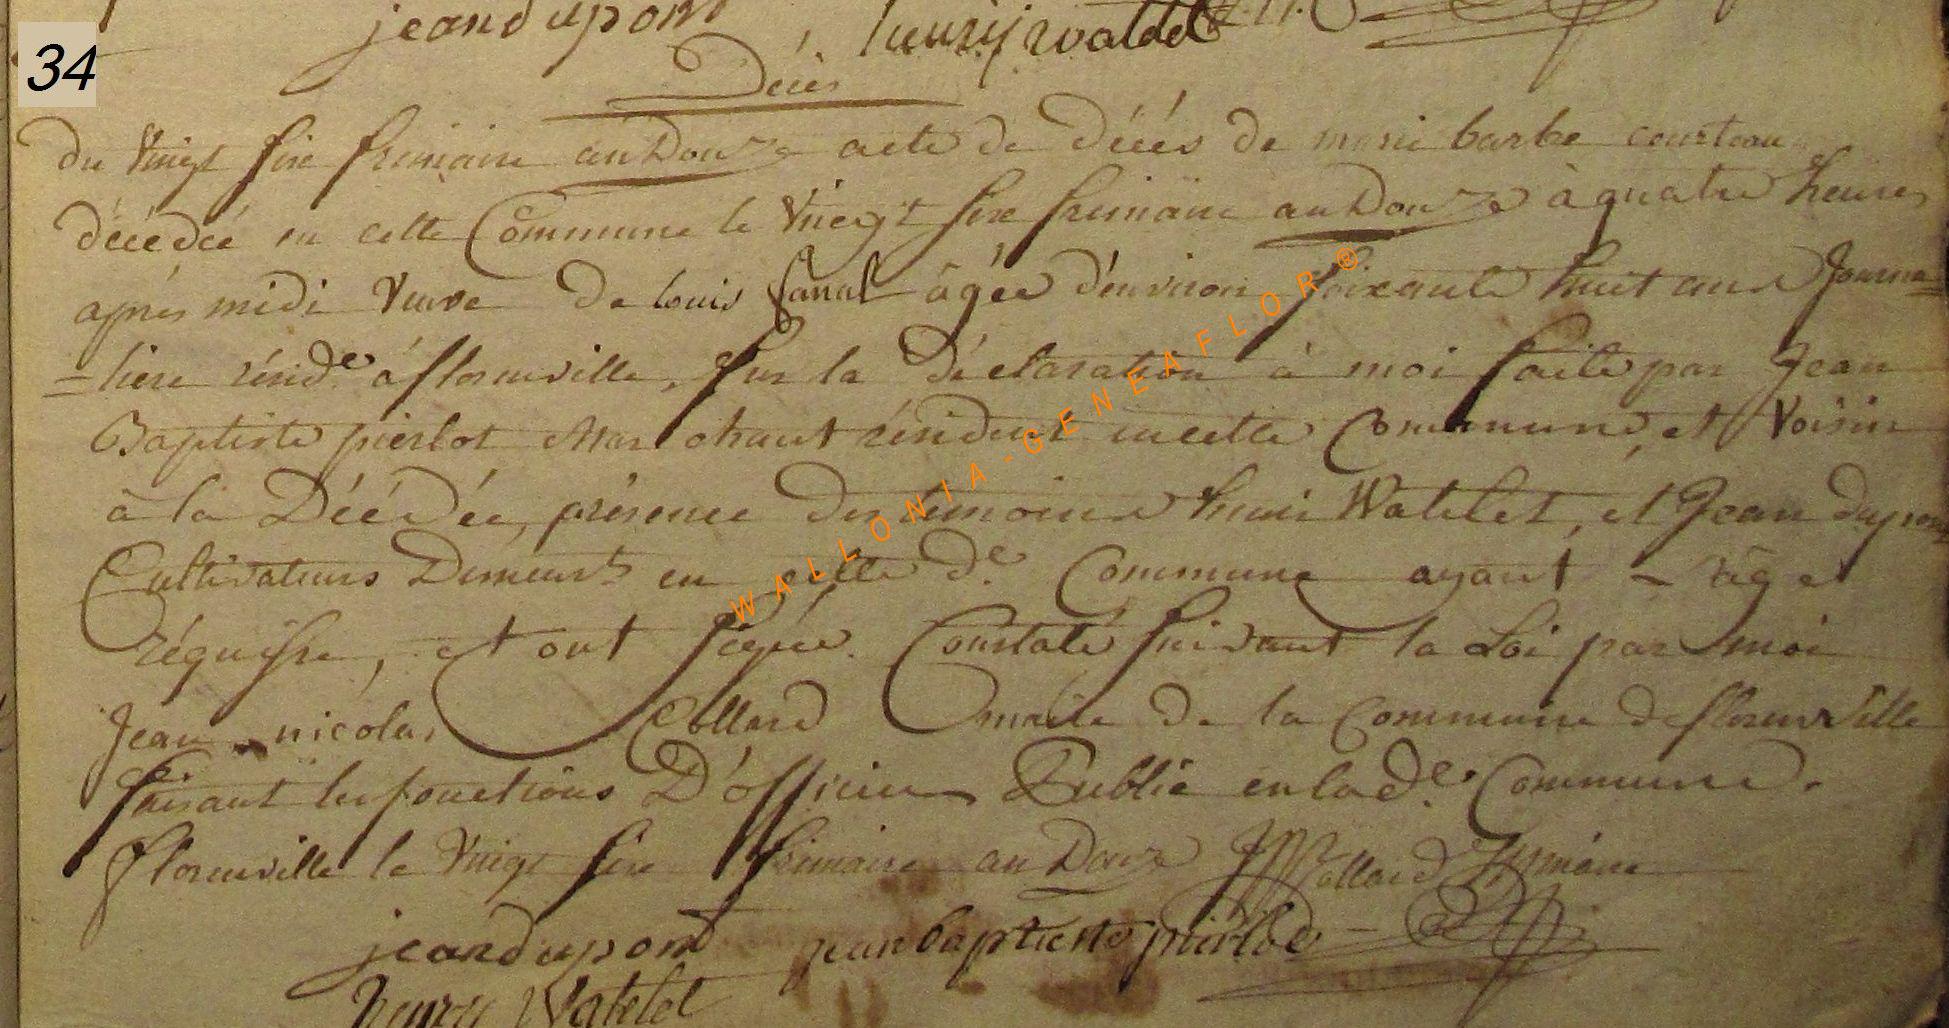 jeandupont, henry watelet
34
Décès
du vingt sixe frimaire an Douze acte de décés de marie barbe courteau
décédée en cette Commune le vingt sixe frimaire an Douze à quatre heures
aprés midi veuve De louis âgée d'environ soixante huit ans Journa=
=liere résid.e á florenville, sur la Déclaration à moi faite par Jean
Baptiste pierlot Marchant résident en cette Commune, et Voisin
à la Décédée, présence des témoins henri Watelet, et Jean dupont
Cultivateurs Demeur.ts en cette d.e Commune ayant l'âge
réquisse, et ont signée. Constaté suivant la Loi par moi
Jean nicolas Collard maire de la Commune de florenville
faisant les fonctions D'officier Public en lad.e Commune.
florenville le vingt sixe frimaire an Douze JNCollard
jeandupont jean baptiste pierlot
henry Watelet
WALLONIA-GENEAFLOR®